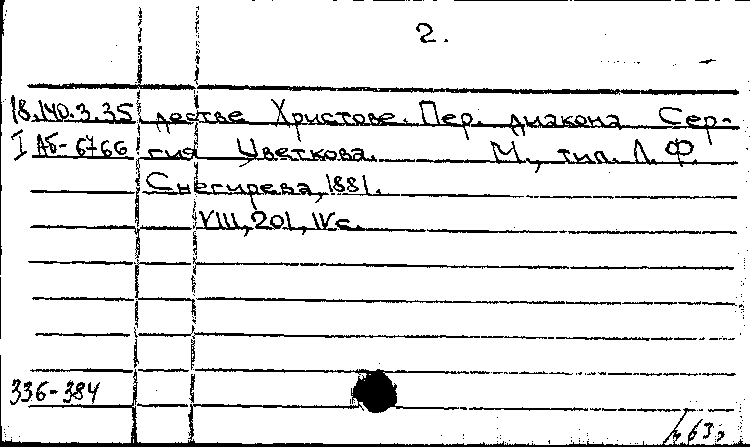 2.
18.140.3.35 достве Христове. Пер. диакона Сер-
I Аб-6766 гия Цветкова. М., тип. Л. Ф.
Снегирева, 1881.
VIII, 201, IV с.
336-384